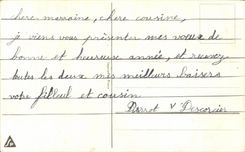 chere marraine, chere cousine,
je viens vous présenter mes vœux de
bonne et heureuse année, et recevez
toutes les deux mes meilleurs baisers
votre filleul et cousin
Pierrot